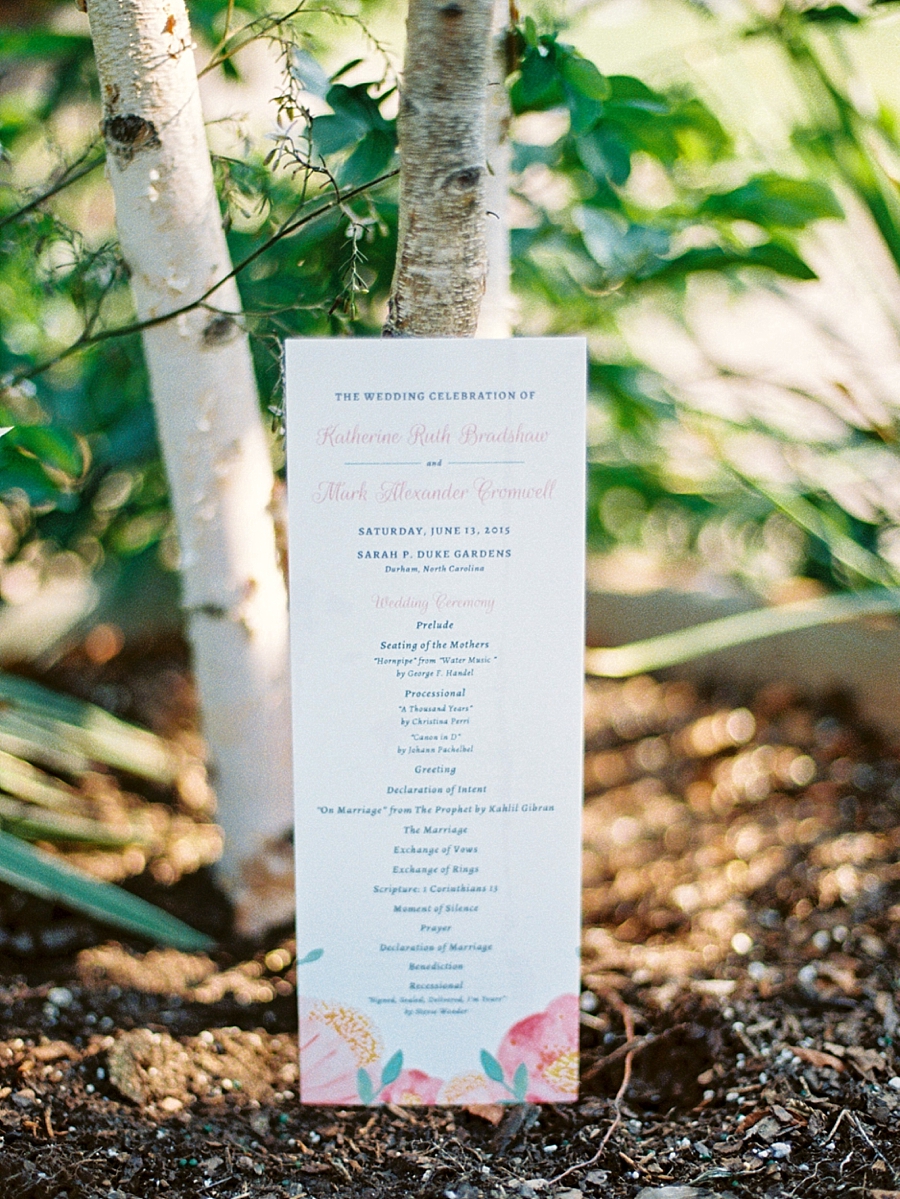 THE WEDDING CELEBRATION OF
Katherine Ruth Bradshaw
and
Mark Alexander Cromwell
SATURDAY, JUNE 13, 2015
SARAH P. DUKE GARDENS
Durham, North Carolina
Wedding Ceremony
Prelude
Seating of the Mothers
"Hornpipe" from "Water Music "
by George F. Handel
Processional
"A Thousand Years"
by Christina Perri
"Canon in D"
by Johann Pachelbel
Greeting
Declaration of Intent
"On Marriage" from The Prophet by Kahlil Gibran
The Marriage
Exchange of Vows
Exchange of Rings
Scripture: 1 Corinthians 13
Moment of Silence
Prayer
Declaration of Marriage
Benediction
Recessional
"Signed, Sealed, Delivered, I'm Yours"
by Stevie Wonder